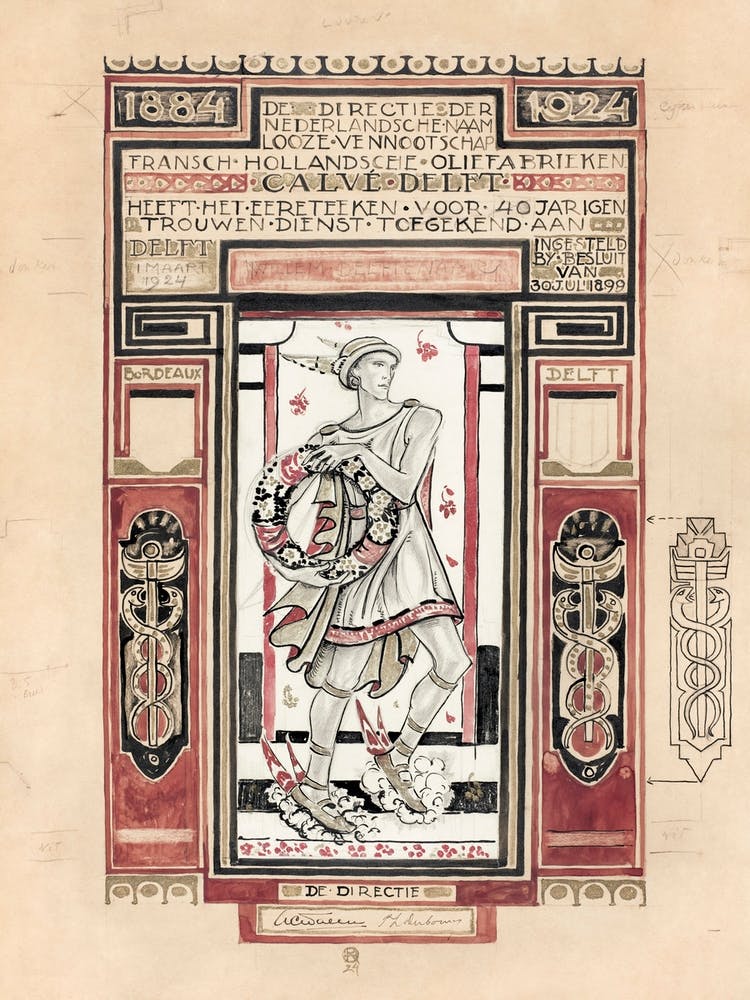 1884
1924
DE DIRECTIE DER
NEDERLANDSCHE NAAM
LOOZE VENNOOTSCHAP
FRANSCH·HOLLANDSCHE·OLIEFABRIEKEN
·CALVÉ·DELFT·
HEEFT·HET·EERETEEKEN·VOOR·40 JARIGEN
TROUWEN·DIENST·TOEGEKEND·AAN
DELFT
1 MAART
1924
INGESTELD
BY·BESLUIT
VAN
30 JULI 1899
BORDEAUX
DELFT
DE·DIRECTIE
24